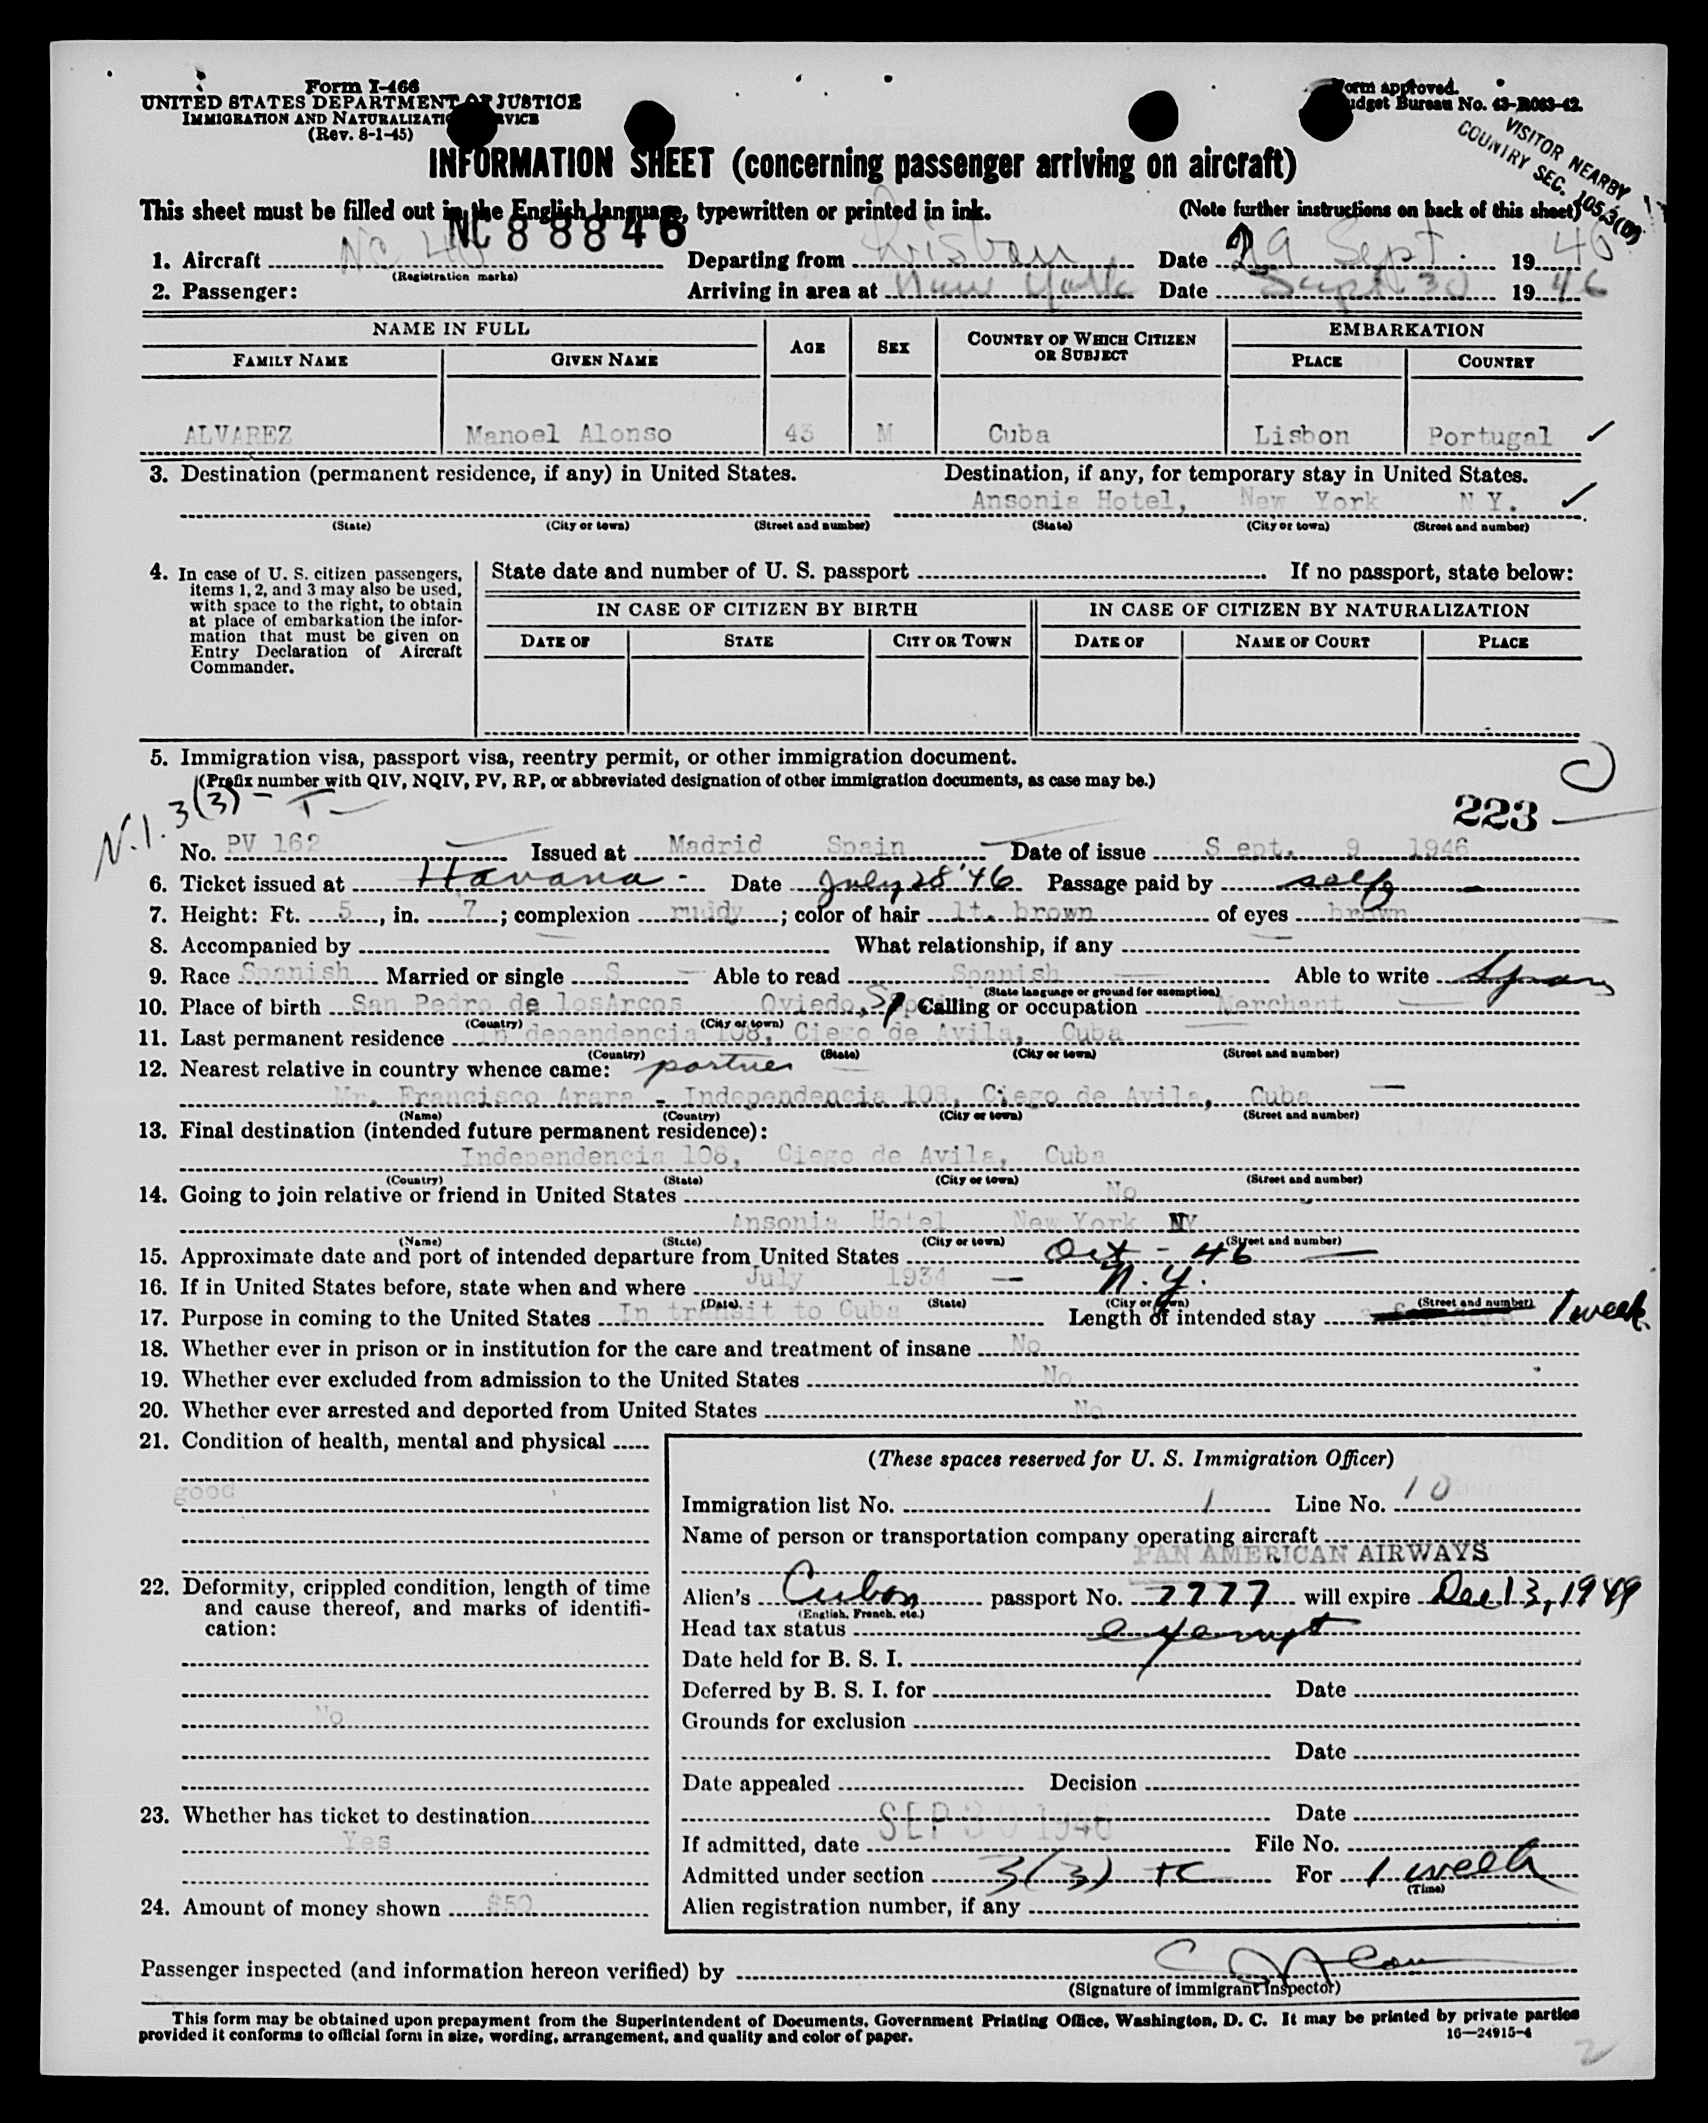 Form I-466
UNITED STATES DEPARTMENT OF JUSTICE
IMMIGRATION AND NATURALIZATION SERVICE
(Rev. 8-1-45)
Form approved.
Budget Bureau No. 43-R063-42.
VISITOR NEARBY
COUNTRY SEC. 105.3(b)
INFORMATION SHEET (concerning passenger arriving on aircraft)
This sheet must be filled out in the English language, typewritten or printed in ink. (Note further instructions on back of this sheet)
NC 88846
1. Aircraft NC Departing from Lisbon Date 29 Sept. 1946
(Registration marks)
2. Passenger: Arriving in area at New York Date Sept 30 1946
NAME IN FULL AGE SEX COUNTRY OF WHICH CITIZEN OR SUBJECT EMBARKATION
FAMILY NAME GIVEN NAME PLACE COUNTRY
ALVAREZ Manoel Alonso 43 M Cuba Lisbon Portugal
3. Destination (permanent residence, if any) in United States. Destination, if any, for temporary stay in United States.
Ansonia Hotel, New York N Y.
(State) (City or town) (Street and number) (State) (City or town) (Street and number)
4. In case of U. S. citizen passengers, items 1, 2, and 3 may also be used, with space to the right, to obtain at place of embarkation the information that must be given on Entry Declaration of Aircraft Commander.
State date and number of U. S. passport If no passport, state below:
IN CASE OF CITIZEN BY BIRTH IN CASE OF CITIZEN BY NATURALIZATION
DATE OF STATE CITY OR TOWN DATE OF NAME OF COURT PLACE
5. Immigration visa, passport visa, reentry permit, or other immigration document.
(Prefix number with QIV, NQIV, PV, RP, or abbreviated designation of other immigration documents, as case may be.)
N.I. 3(3) - T - 223
No. PV 162 Issued at Madrid Spain Date of issue Sept. 9 1946
6. Ticket issued at Havana - Date July 28 '46 Passage paid by self
7. Height: Ft. 5, in. 7; complexion ruddy; color of hair lt. brown of eyes brown
8. Accompanied by What relationship, if any
9. Race Spanish Married or single S Able to read Spanish Able to write Span
(State language or ground for exemption)
10. Place of birth San Pedro de losArcos Oviedo, Sp Calling or occupation Merchant
(Country) (City or town)
11. Last permanent residence Independencia 108, Ciego de Avila, Cuba
(Country) (State) (City or town) (Street and number)
12. Nearest relative in country whence came: partner
Mr. Francisco Arara - Independencia 108, Ciego de Avila, Cuba
(Name) (Country) (City or town) (Street and number)
13. Final destination (intended future permanent residence):
Independencia 108, Ciego de Avila, Cuba
(Country) (State) (City or town) (Street and number)
14. Going to join relative or friend in United States No
Ansonia Hotel New York NY
(Name) (State) (City or town) (Street and number)
15. Approximate date and port of intended departure from United States Oct - 46
16. If in United States before, state when and where July 1934 - N.Y.
(Date) (State) (City or town) (Street and number)
17. Purpose in coming to the United States In transit to Cuba Length of intended stay 1 week
18. Whether ever in prison or in institution for the care and treatment of insane No
19. Whether ever excluded from admission to the United States No
20. Whether ever arrested and deported from United States No
21. Condition of health, mental and physical
good
22. Deformity, crippled condition, length of time and cause thereof, and marks of identification:
No
23. Whether has ticket to destination
Yes
24. Amount of money shown $50
(These spaces reserved for U. S. Immigration Officer)
Immigration list No. 1 Line No. 10
Name of person or transportation company operating aircraft
PAN AMERICAN AIRWAYS
Alien's Cuban passport No. 7777 will expire Dec 13, 1949
(English, French, etc.)
Head tax status exempt
Date held for B. S. I.
Deferred by B. S. I. for Date
Grounds for exclusion
Date
Date appealed Decision
Date
If admitted, date SEP 30 1946 File No.
Admitted under section 3(3) TC For 1 week
(Time)
Alien registration number, if any
Passenger inspected (and information hereon verified) by
(Signature of immigrant inspector)
This form may be obtained upon prepayment from the Superintendent of Documents, Government Printing Office, Washington, D. C. It may be printed by private parties
provided it conforms to official form in size, wording, arrangement, and quality and color of paper. 16—24915-4
2